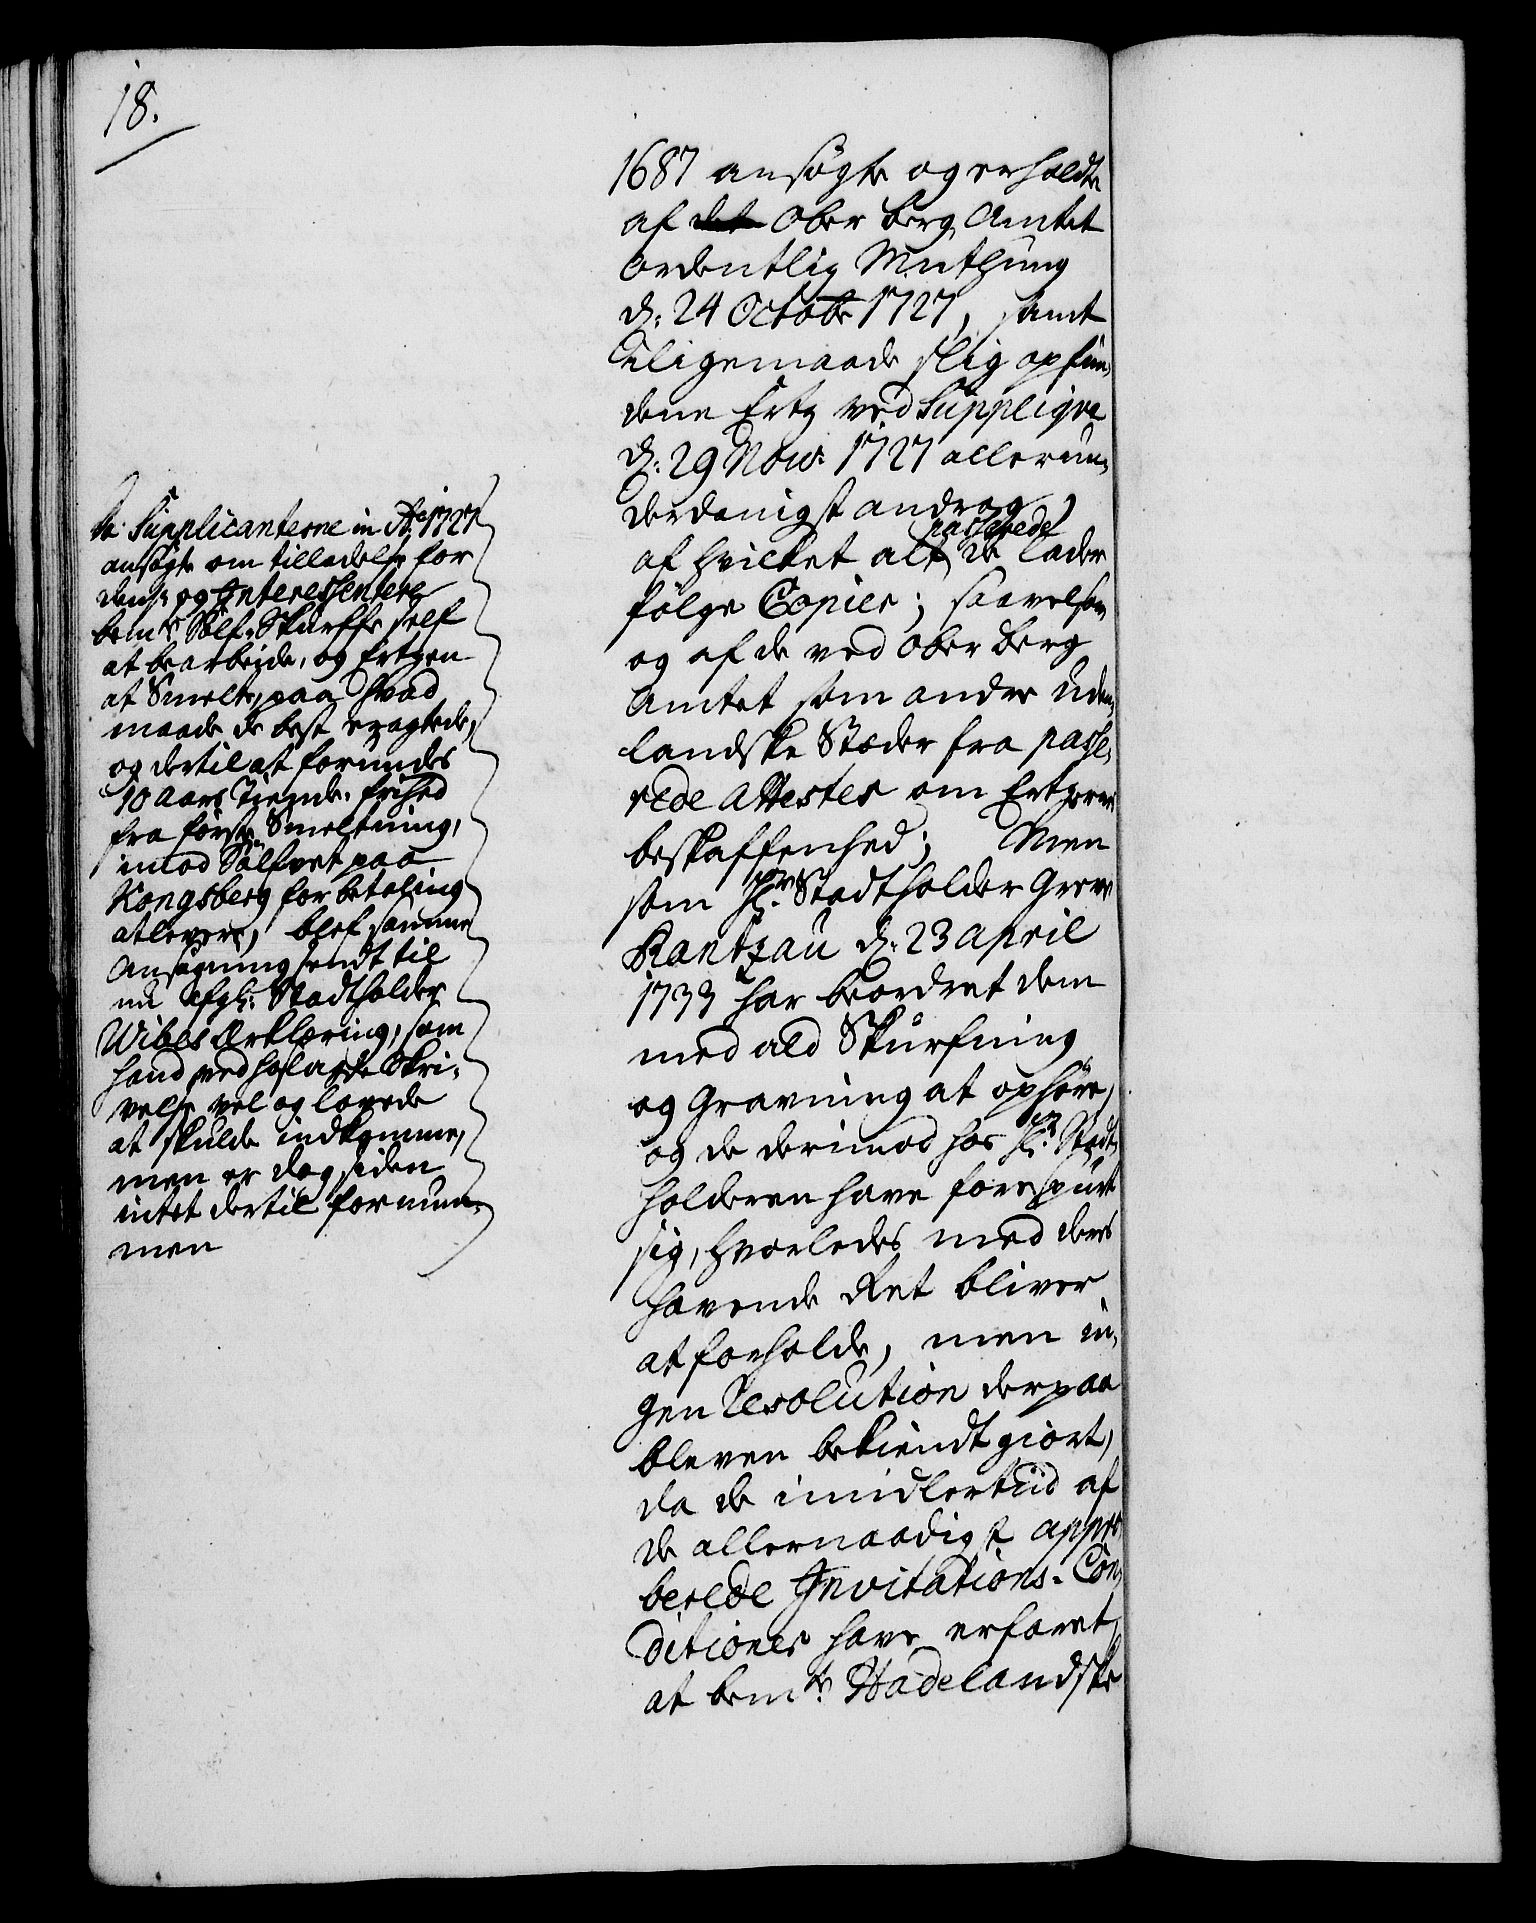 18.
1687 ansögte og erholdte
af det Ober Berg Amtet
ordentlig Muthung
d: 24 Octobr 1727, samt
liigemaade slig opfun¬
dene Ertz ved Supplique
d: 29 Novr 1727 allerun¬
derdanigst androg,
af hvilket alt passerede de lader
fölge Copier; saavelsom
og af de ved Ober Berg
Amtet som andre Uden¬
landske Stæder fra passe¬
rede Attester om Ertzernes
beskaffenhed; Men
som Hr. Stadtholder Greve
Rantzau d: 23 April
1733 har beordret dem
med ald Skurfning
og Gravning at ophöre,
og de derimod hos Hr. Stadt¬
holderen have forespurt
sig, hvorledes med deres
havende Ret bliver
at forholde, men in¬
gen Resolution derpaa
bleven bekiendtgiort,
da de imidlertiid af
de allernaadigst appro¬
berede Invitations-Con¬
ditioner have erfaret,
at bemte Hadelandske
de Supplicanterne in Ao 1727
ansögte om tilladelse for
dem og Interessentere
bemte Sölf-Skurffe self
at bearbeide, og Ertzen
at Smelte, paa hvad
maade de best eragtede,
og dertil at forundes
10 Aars Tiende-frihed
fra förste Smeltning,
imod Sölfvet paa
Kongsberg for betaling
at levere, blef samme
Ansögning sendt til
nu afgl: Stadtholder
Wibes Erklæring, som
hand ved hoslagde Skri¬
velse vel og lovede
at skulde indkomme,
men er dog siden
intet dertil fornum¬
men